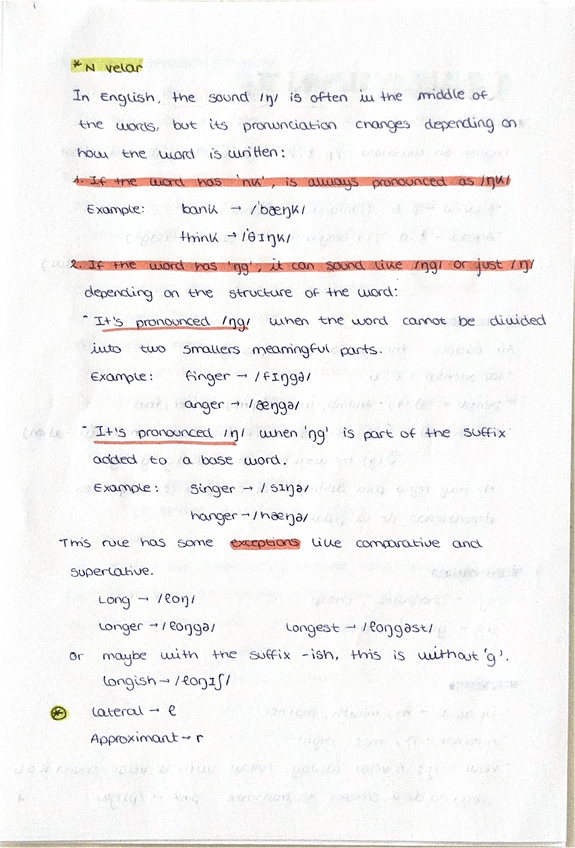 * N velar
In English, the sound /ŋ/ is often in the middle of
the words, but its pronunciation changes depending on
how the word is written:
1. If the word has 'nk', is always pronounced as /ŋk/
Example: bank → /ˈbæŋk/
think → /ˈθɪŋk/
2. If the word has 'ng', it can sound like /ŋg/ or just /ŋ/
depending on the structure of the word:
- It's pronounced /ŋg/ when the word cannot be divided
into two smallers meaningful parts.
Example: finger → /fɪŋgə/
anger → /æŋgə/
- It's pronounced /ŋ/ when 'ng' is part of the suffix
added to a base word.
Example: singer → /sɪŋə/
hanger → /hæŋə/
This rule has some exceptions like comparative and
superlative.
Long → /lɒŋ/
Longer → /lɒŋgə/ Longest → /lɒŋgəst/
Or maybe with the suffix -ish, this is without 'g'.
Longish → /lɒŋɪʃ/
* Lateral → l
Approximant → r